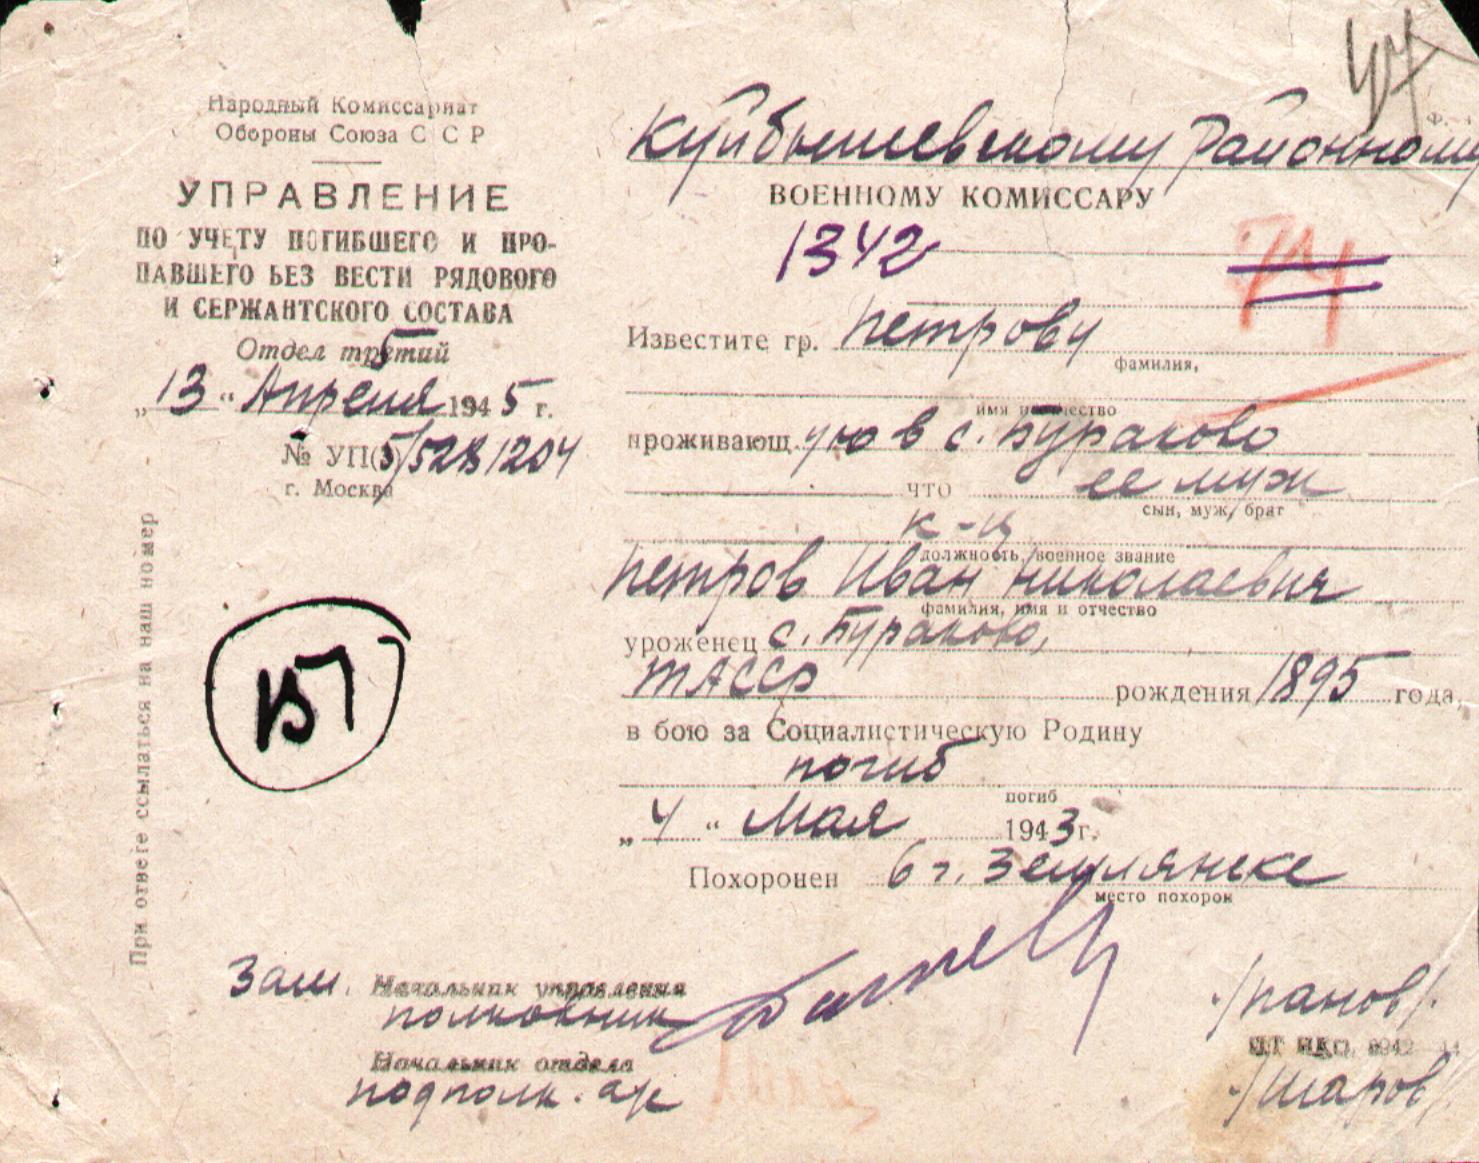 47
Народный Комиссариат
Обороны Союза С С Р
УПРАВЛЕНИЕ
ПО УЧЕТУ ПОГИБШЕГО И ПРО-
ПАВШЕГО БЕЗ ВЕСТИ РЯДОВОГО
И СЕРЖАНТСКОГО СОСТАВА
Отдел третий
5
„13“ Апреля 1945 г.
№ УП(5/528/1204
г. Москва
При ответе ссылаться на наш номер
Куйбышевскому Районному
ВОЕННОМУ КОМИССАРУ
1342
Известите гр. Петрову
фамилия,
имя и отчество
проживающ.ую в с. Бураково
что ее муж
сын, муж, брат
к-ц
должность, военное звание
Петров Иван Николаевич
фамилия, имя и отчество
уроженец с. Бураково,
ТАССР рождения 1895 года,
в бою за Социалистическую Родину
погиб
погиб
„4“ Мая 1943 г.
Похоронен в г. Землянске
место похорон
Зам. Начальник управления
полковник /Панов/.
Начальник отдела
подполк. а/с /Шаров/.